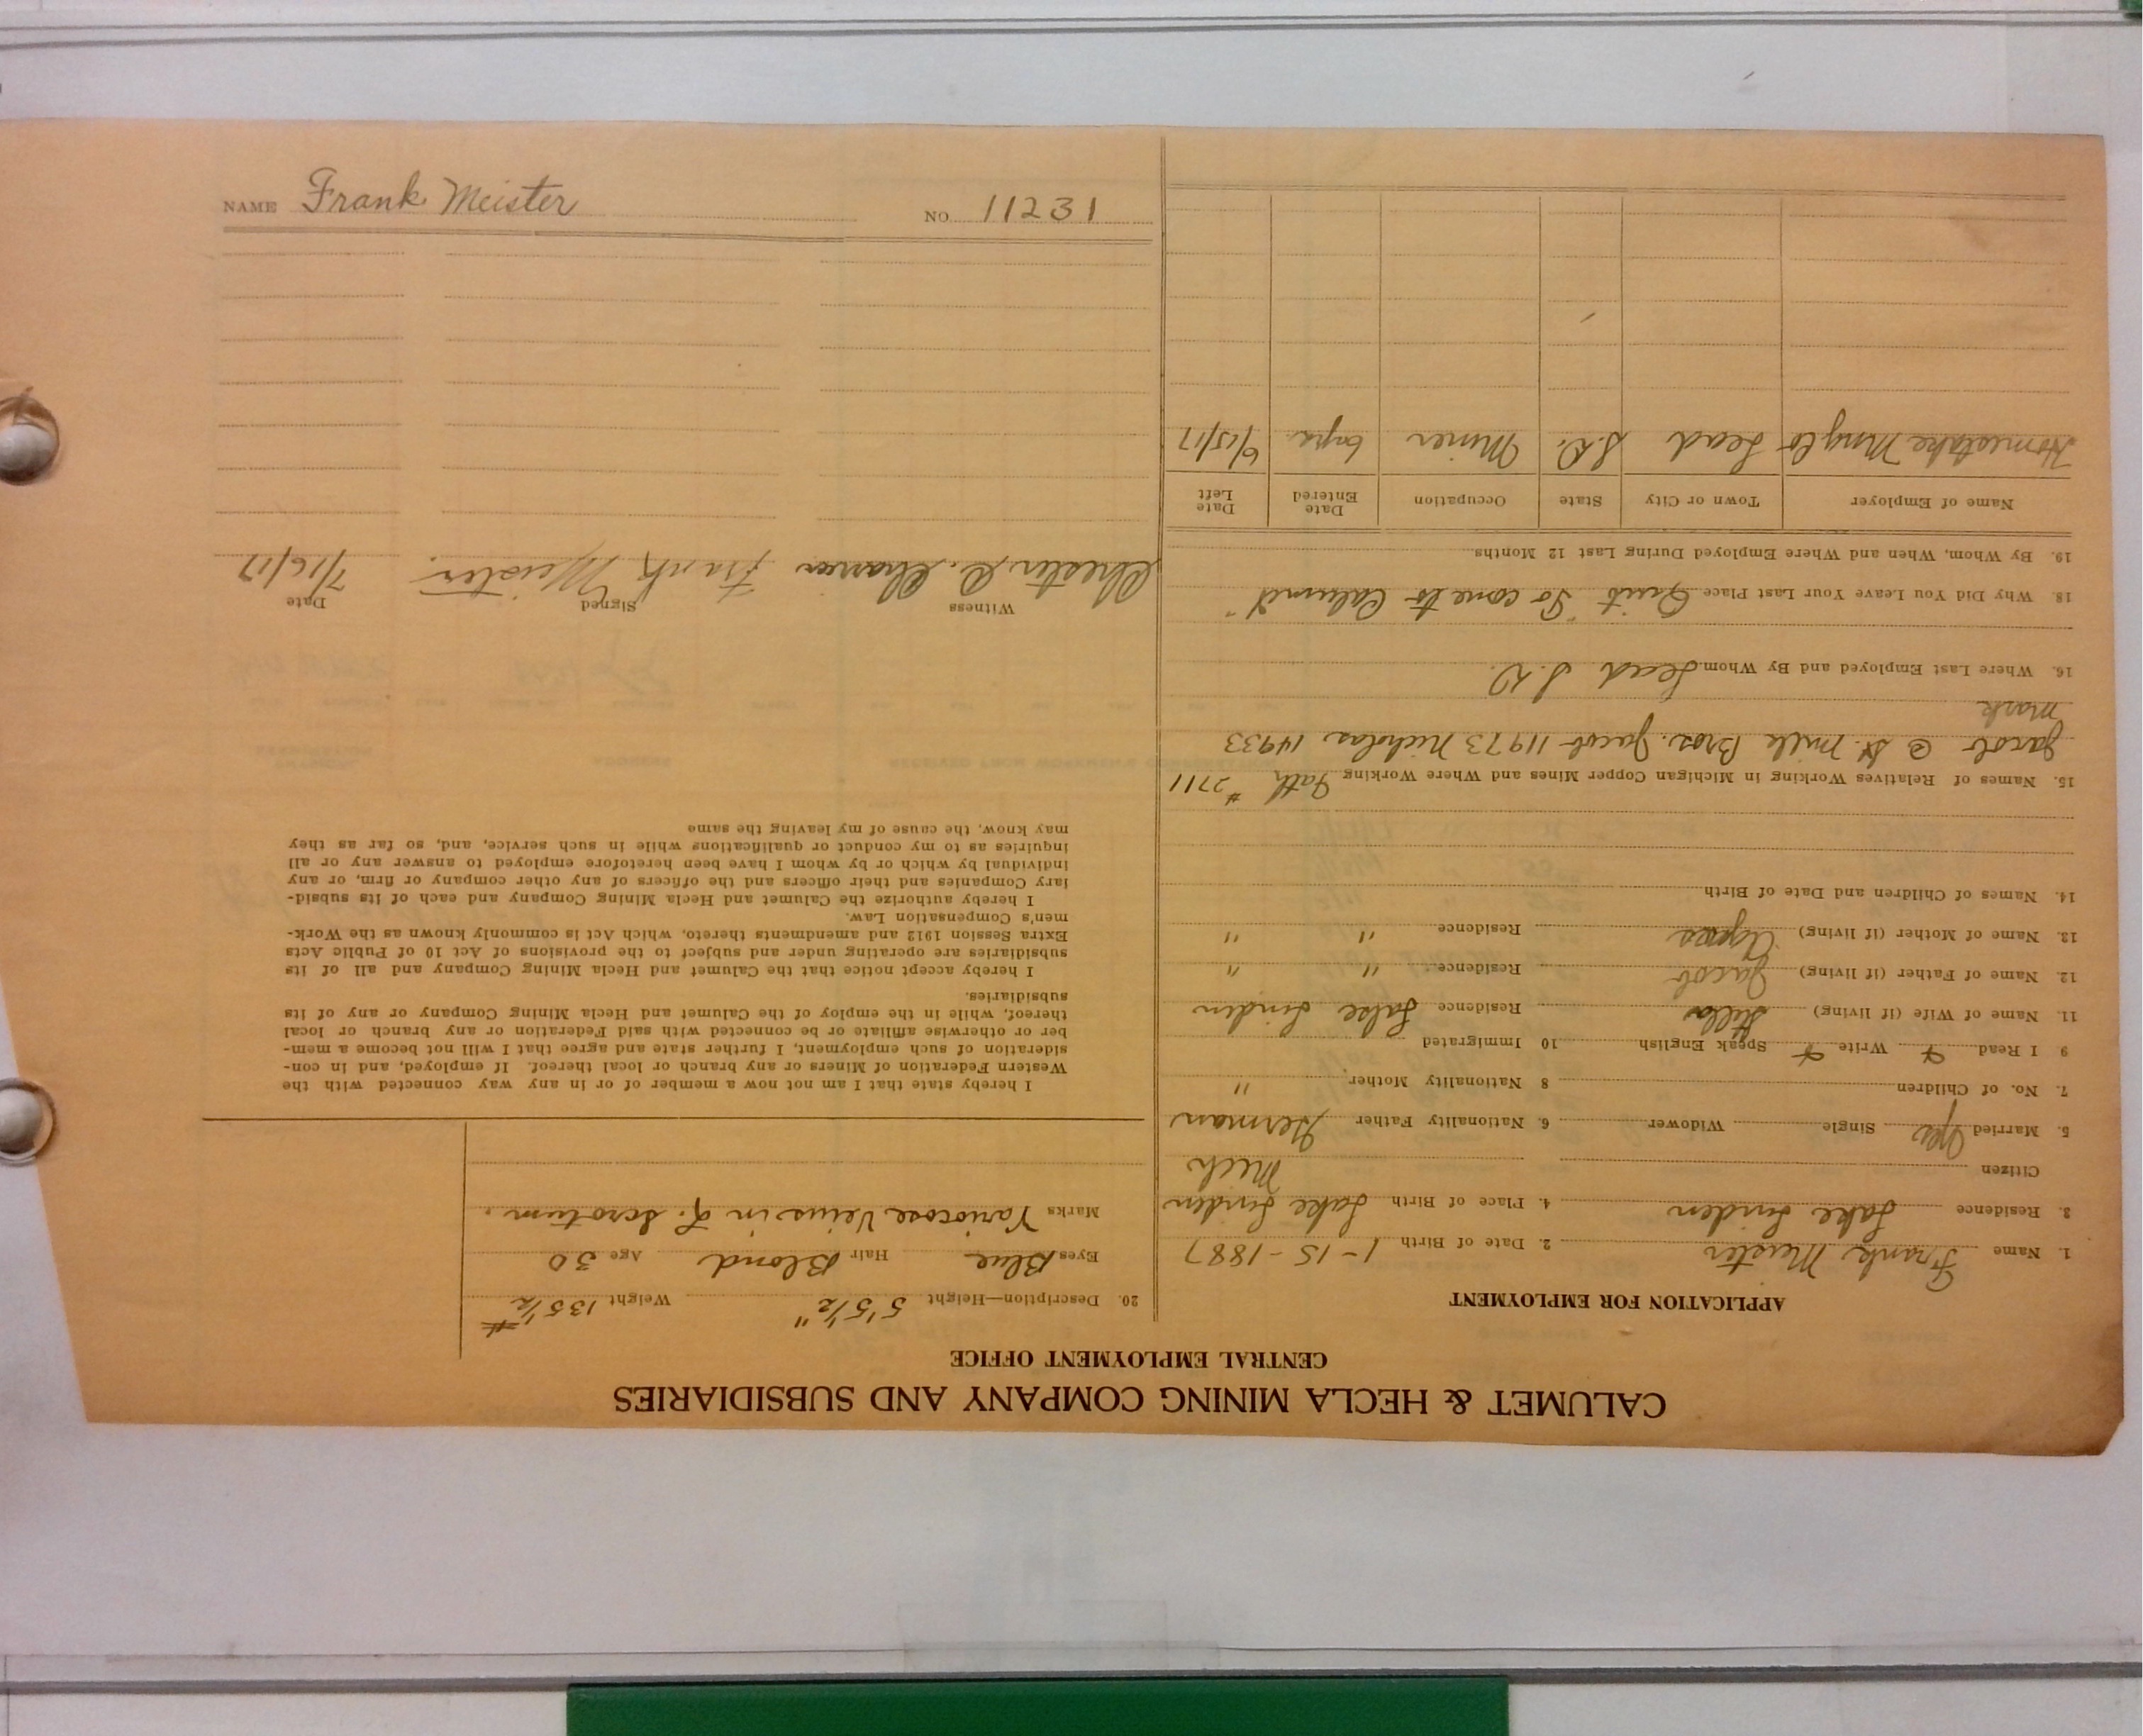 CALUMET & HECLA MINING COMPANY AND SUBSIDIARIES
CENTRAL EMPLOYMENT OFFICE
APPLICATION FOR EMPLOYMENT
1. Name Frank Meister 2. Date of Birth 1-15-1887
3. Residence Lake Linden 4. Place of Birth Lake Linden
Citizen Mich
5. Married Yes Single Widower 6. Nationality Father German
7. No. of Children 8 Nationality Mother "
9 I Read Write Speak English 10 Immigrated
11. Name of Wife (if living) Stella Residence Lake Linden
12. Name of Father (if living) Jacob Residence " "
13. Name of Mother (if living) Agnes Residence " "
14. Names of Children and Date of Birth
15. Names of Relatives Working in Michigan Copper Mines and Where Working Fath #2711
Jacob @ St. Mill Bros. Jacob 11973 Nicholas 14933
Mark
16. Where Last Employed and By Whom Lead S.D.
18. Why Did You Leave Your Last Place Quit "To come to Calumet"
19. By Whom, When and Where Employed During Last 12 Months
Name of Employer Town or City State Occupation Date Entered Date Left
Homestake Mng Co Lead S.D. Miner 6/15/17
20. Description—Height 5'5½" Weight 135½ #
Eyes Blue Hair Blond Age 30
Marks Varicose Veins in L. Scrotum.
I hereby state that I am not now a member of or in any way connected with the
Western Federation of Miners or any branch or local thereof. If employed, and in con-
sideration of such employment, I further state and agree that I will not become a mem-
ber or otherwise affiliate or be connected with said Federation or any branch or local
thereof, while in the employ of the Calumet and Hecla Mining Company or any of its
subsidiaries.
I hereby accept notice that the Calumet and Hecla Mining Company and all of its
subsidiaries are operating under and subject to the provisions of Act 10 of Public Acts
Extra Session 1912 and amendments thereto, which Act is commonly known as the Work-
men's Compensation Law.
I hereby authorize the Calumet and Hecla Mining Company and each of its subsid-
iary Companies and their officers and the officers of any other company or firm, or any
individual by which or by whom I have been heretofore employed to answer any or all
inquiries as to my conduct or qualifications while in such service, and, so far as they
may know, the cause of my leaving the same
Witness Signed Date
Chester C. Frank Meister. 7/16/17
NAME Frank Meister NO. 11231